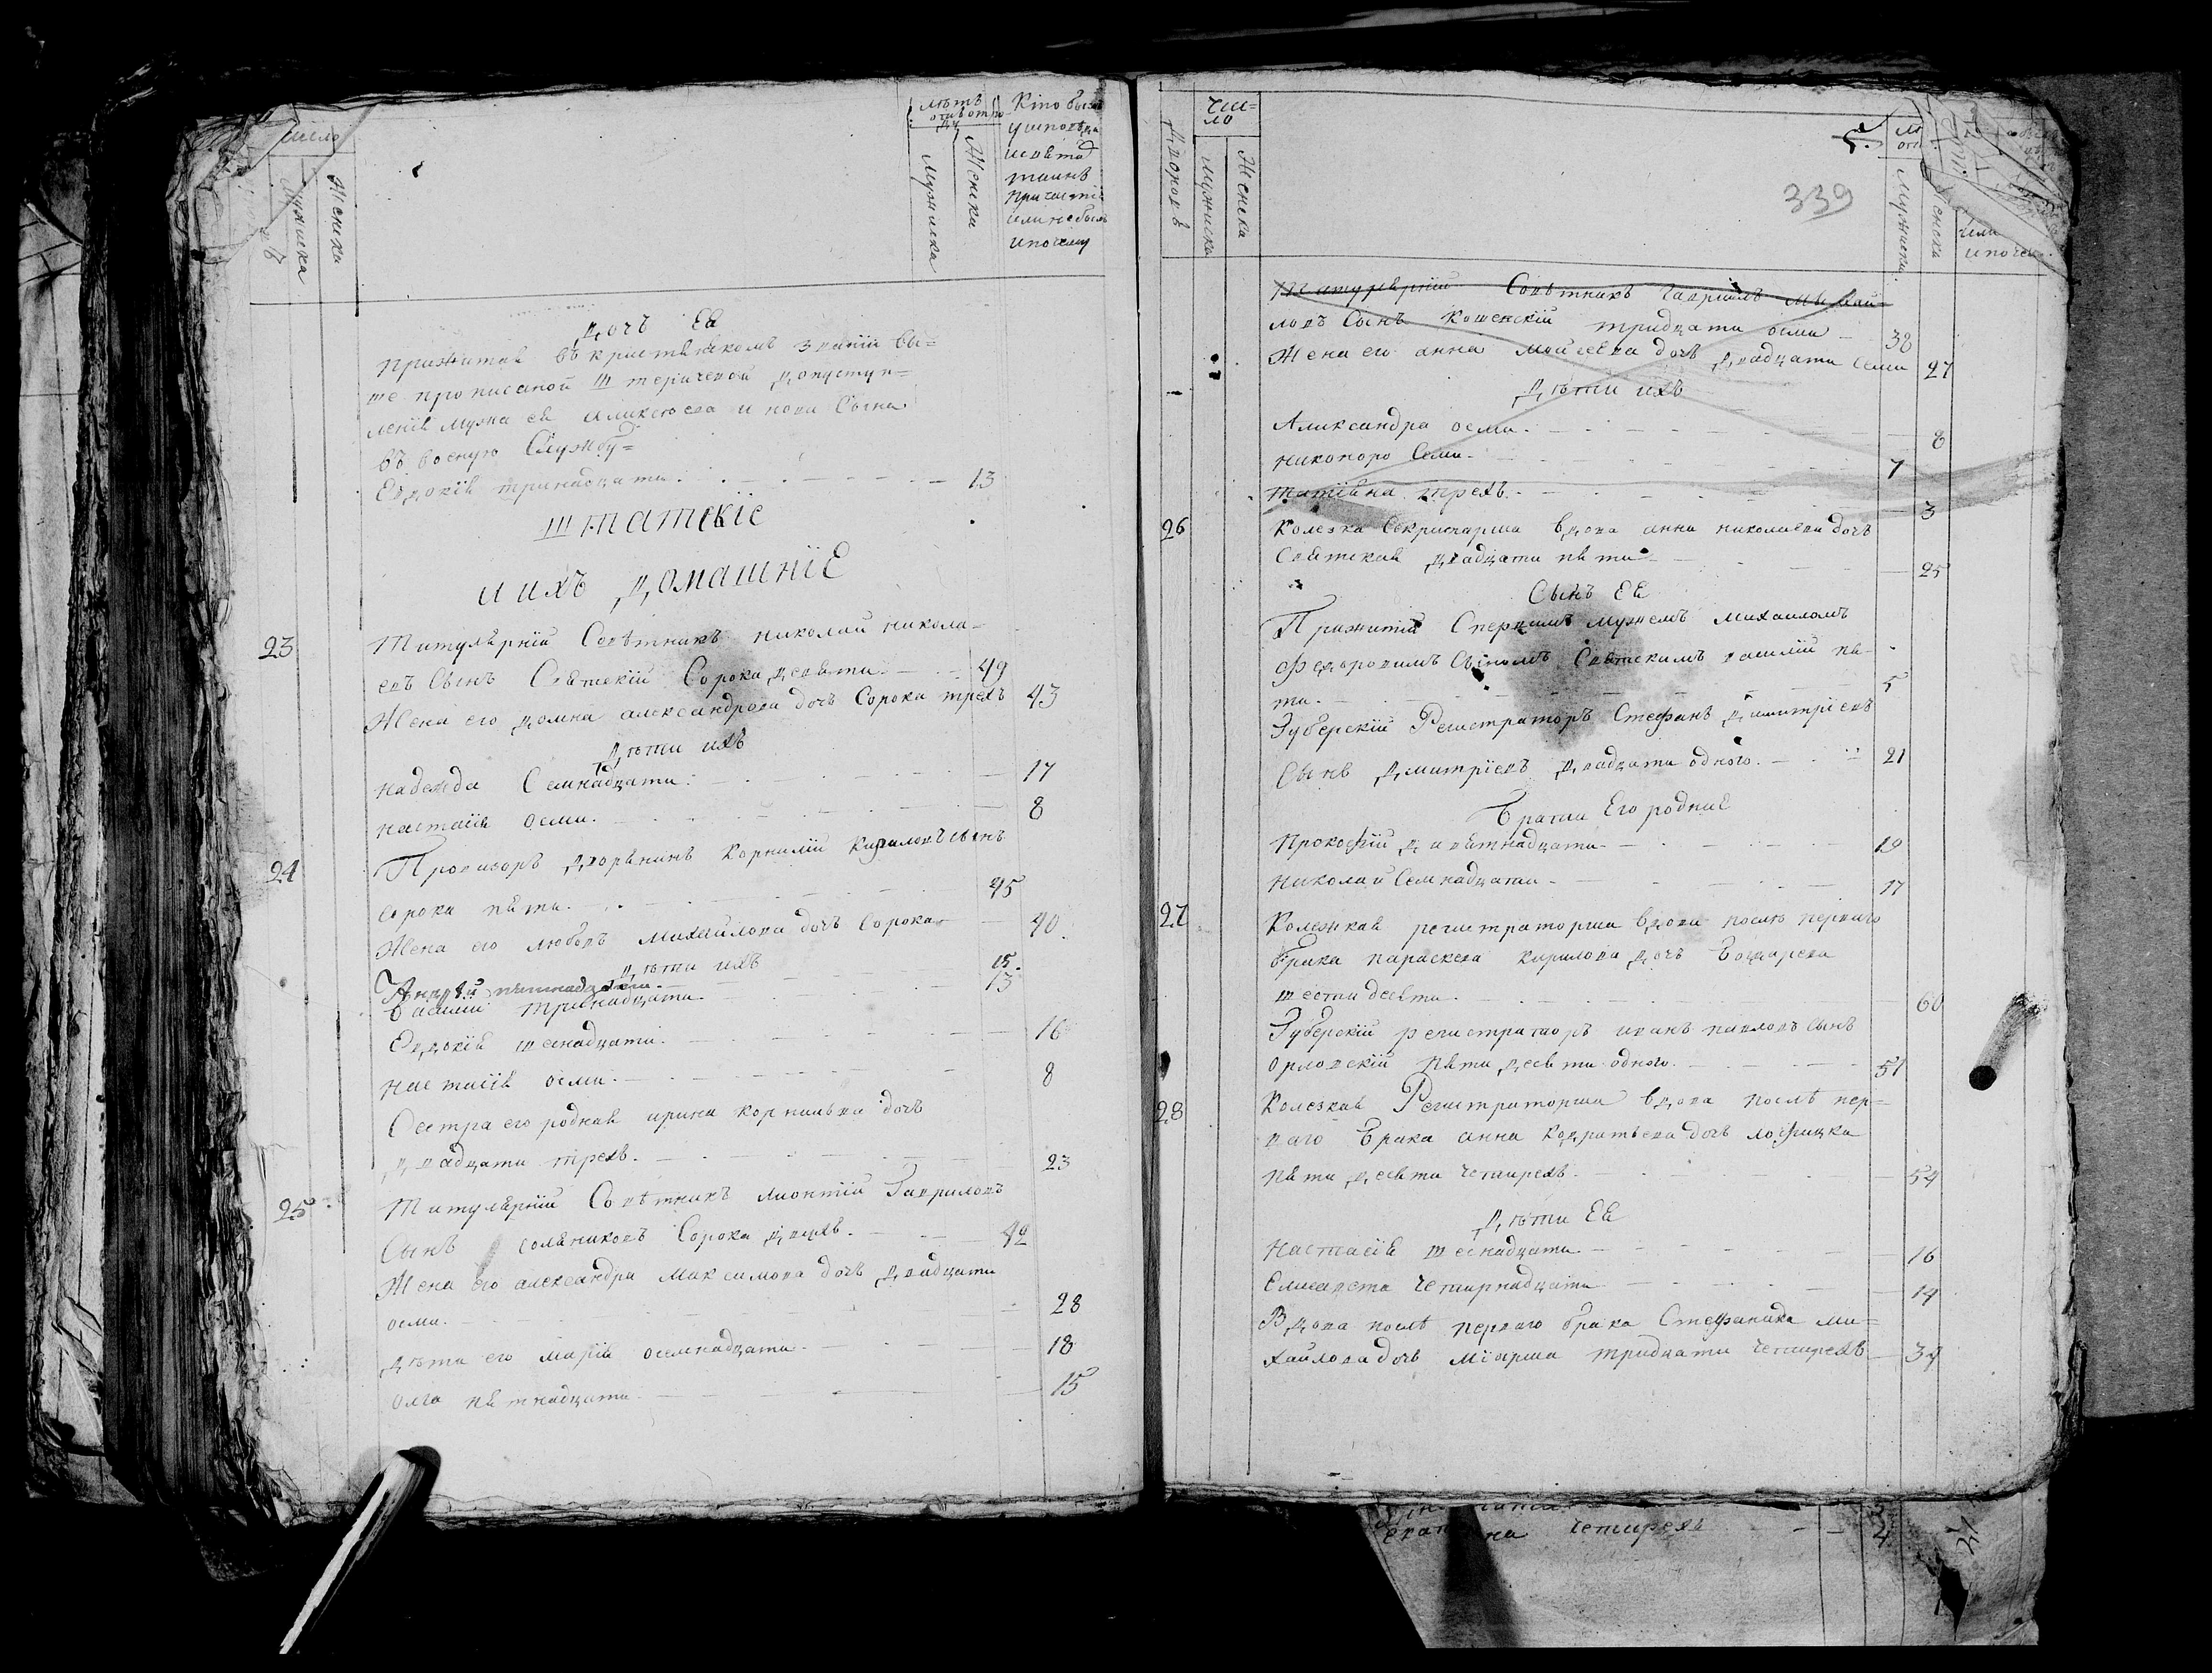 число
Мужиска
Женика
лѣтъ
отъ
Мужиска
Женика
Кто былъ
у исповѣда
и св͠та
таинъ
причастія
или не былъ
и почему
Дочь Ея
Прижитая въ крестянскомъ званіи вы=
ше прописаной
леніи мужа ея Аликсѣева и сына
въ воєную Службу=
Евдокія тринадцати 13
Штатскіе
и ихъ домашніе
23 Титулярній Совѣтникъ николай никола=
евъ Сынъ Святскій Сорока девяти 49
Жена его домна александрова дочь Сорока трехъ 43
дѣти ихъ
надежда Семнадцати 17
настасія осми 8
24 Провизоръ дворянинъ корнилій кириловъ сынъ
сорока пяти 45
Жена его любовъ михайлова дочь сорока 40
дѣти ихъ
Андрѣй пятнадцати 15
Василій тринадцати 13
Евдокія шеснадцати 16
настасія осми 8
Сестра его родная ирина дочь
двадцати трехъ 23
25 Титулярній Совѣтникъ лионтій Гавриловъ
Сынъ соляниковъ Сорока двухъ 42
Жена его александра максимова дочь двадцати
осми 28
Дѣти его марія осемнадцати 18
олга пятнадцати 15
Дворовъ
чис=
ло
Мужиска
Женска
339
Мужиска
Женска
или
и поче
Титулярній Совѣтникъ гавриилъ михай=
ловъ Сынъ Кошенскій тридцати осми 38
Жена его анна мойсеева дочь двадцати семи 27
дѣти ихъ
Александра осми 8
никоноро Семи 7
татіяна трехъ 3
26 Колезка Секритарша вдова анна николаева дочь
Святская двадцати пяти 25
Сынъ Ея
Прижитій Спервимъ мужемъ михаиломъ
Федоровимъ Сыномъ Святскимъ василій пя=
ти 5
Губерскій Регистраторъ Стефанъ димитріевъ
Сынъ дмитріевъ двадцати одного 21
Брати Его родние
Прокофій девятнадцати 19
николай Семнадцати 17
27 Колежкая регистраторша вдова послѣ перваго
брака параскева кирилова дочь Бондарева
шестидесяти 60
Губерскій регистраторъ иванъ павловъ сынъ
орловскій пяти десяти одного 51
28 Колезкая Регистраторша вдова послѣ пер=
ваго Брака анна кодратьева дочь
пяти десяти четирехъ 54
Дѣти Ея
Настасія шеснадцати 16
Елисавета четирнадцати 14
Вдова послѣ перваго брака Стефанида ми=
хайлова дочь тридцати четирехъ 34
четирехъ 4